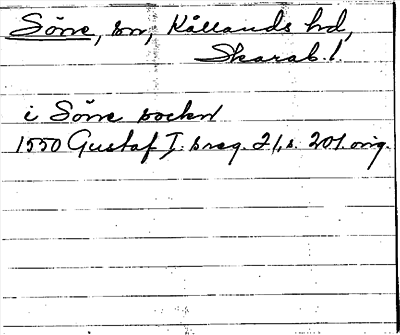 Söne, sn, Kållands hd,
Skarab. l.
i Söne sockn
1550 Gustaf I. s reg. 21, s. 201. orig.